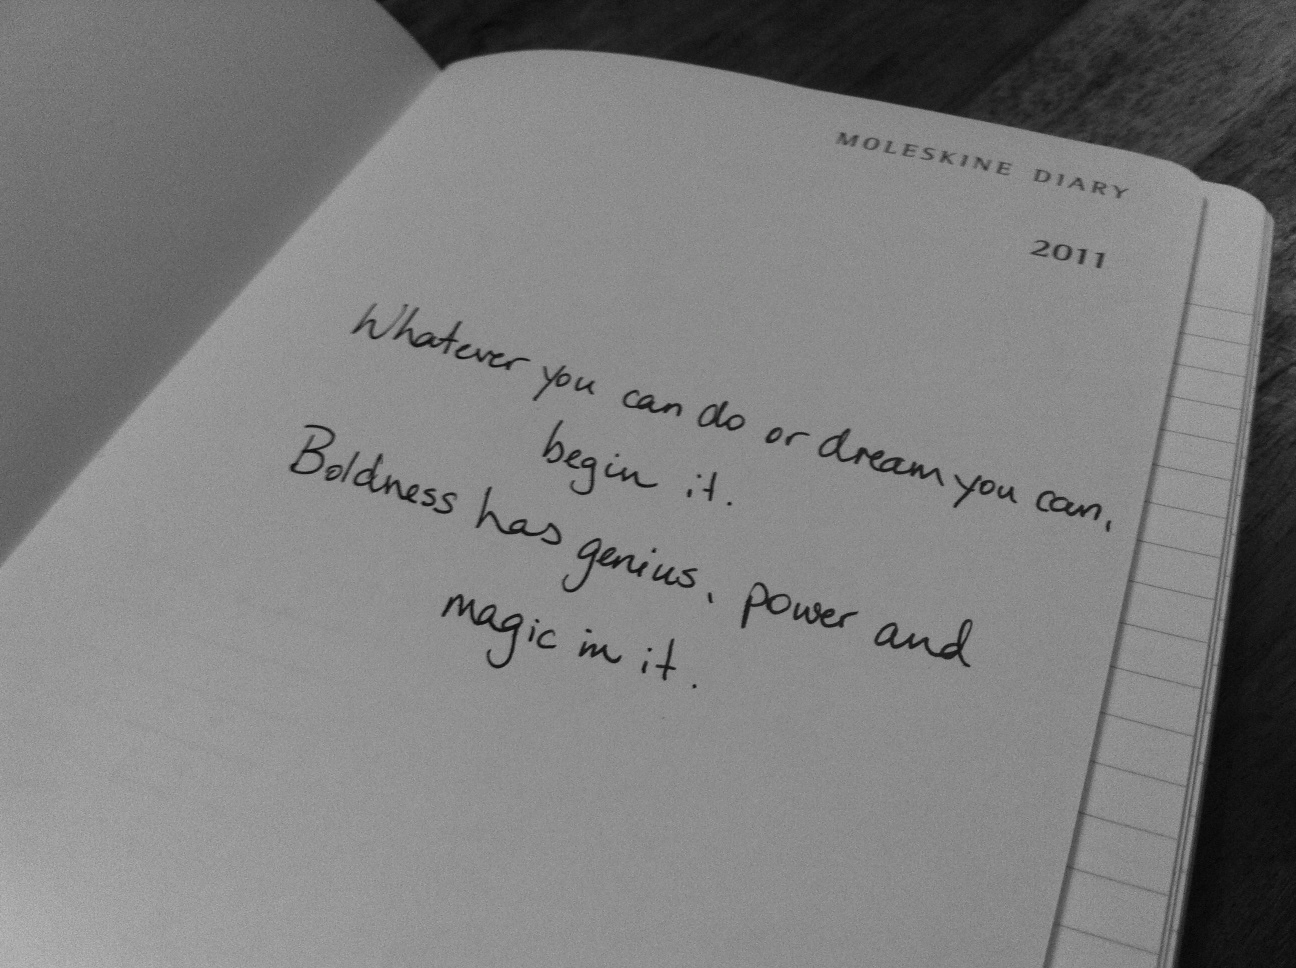 MOLESKINE DIARY
2011
Whatever you can do or dream you can,
begin it.
Boldness has genius, power and
magic in it.